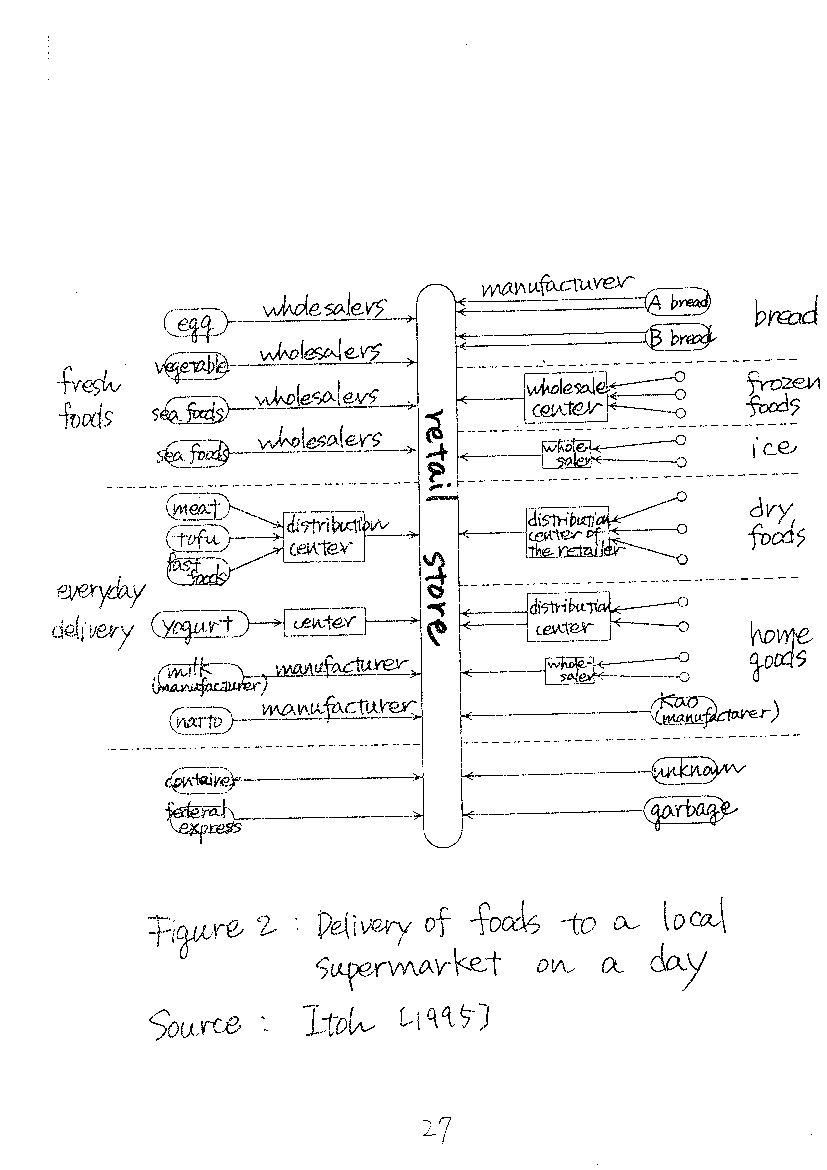 manufacturer
wholesalers
A bread
egg
bread
B bread
wholesalers
vegetable
fresh
foods
wholesale
center
frozen
foods
wholesalers
sea foods
wholesalers
sea foods
whole-
saler
ice
retail store
meat
tofu
fast
foods
distribution
center
distribution
center of
the retailer
dry
foods
everyday
delivery
yogurt
center
distribution
center
home
goods
milk
(manufacturer)
manufacturer
whole-
saler
natto
manufacturer
Kao
(manufacturer)
container
unknown
federal
express
garbage
Figure 2 : Delivery of foods to a local
supermarket on a day
Source : Itoh [1995]
27